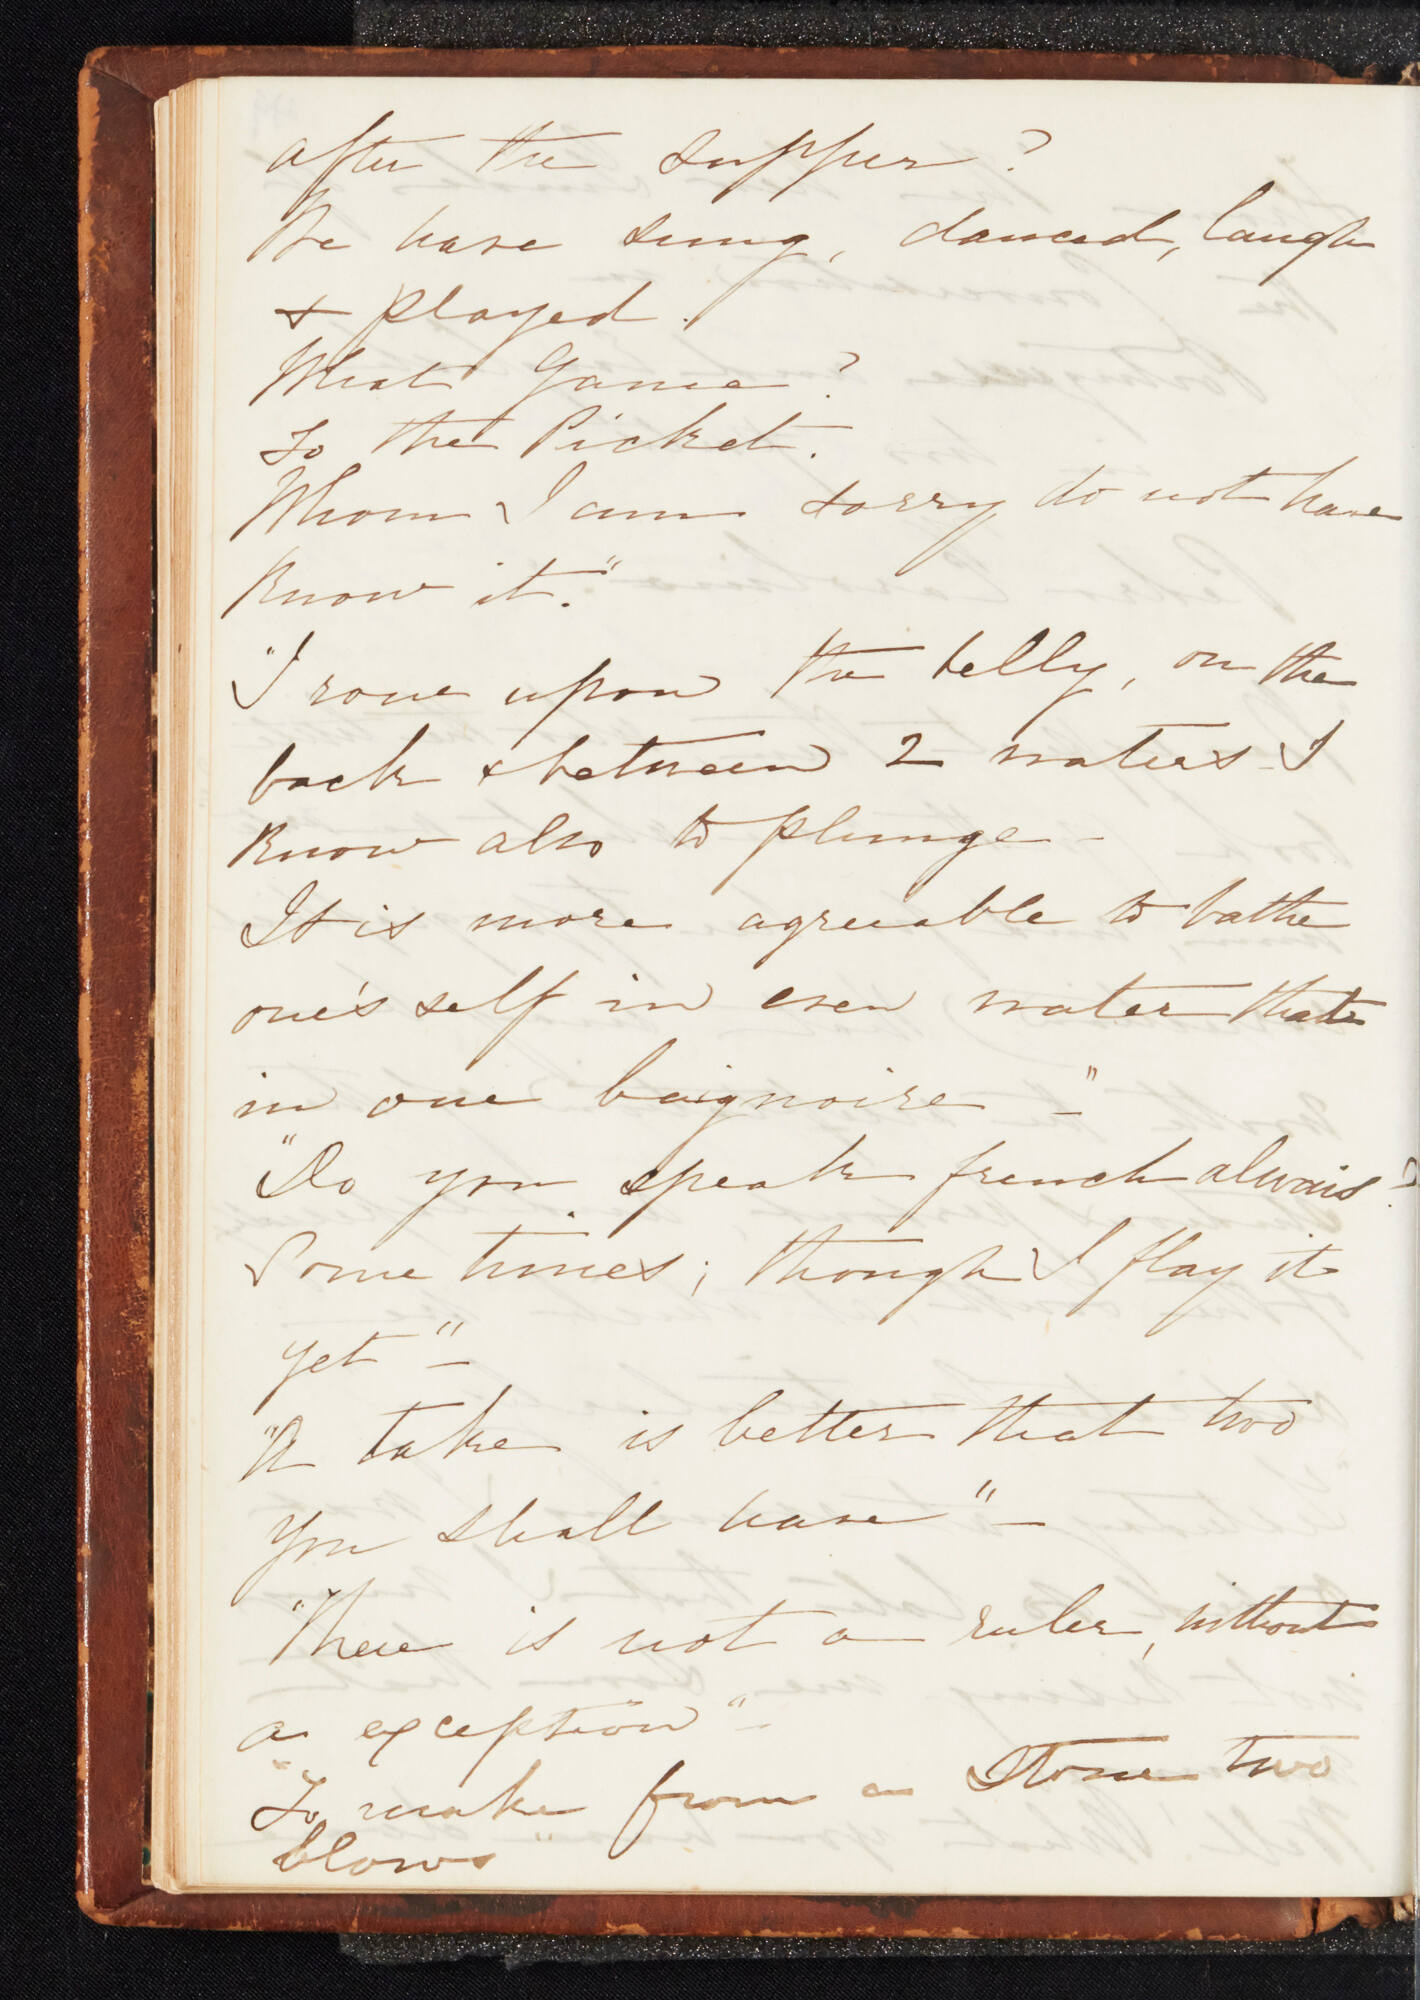 after the supper?
We have sung, danced, laugh
& played.
What game?
To the Picket.
Whom I am sorry do not have
know it."
"I rove upon the belly, on the
back & between 2 waters I
know also to plunge -
It is more agreeable to bathe
one's self in even water that
in one baignoire -"
"Do you speak french alwais?
Some times; though I flay it
yet" -
"A take is better that two
you shall have" -
"There is not a ruler, without
a exception" -
"To make from a Stone two
blows"